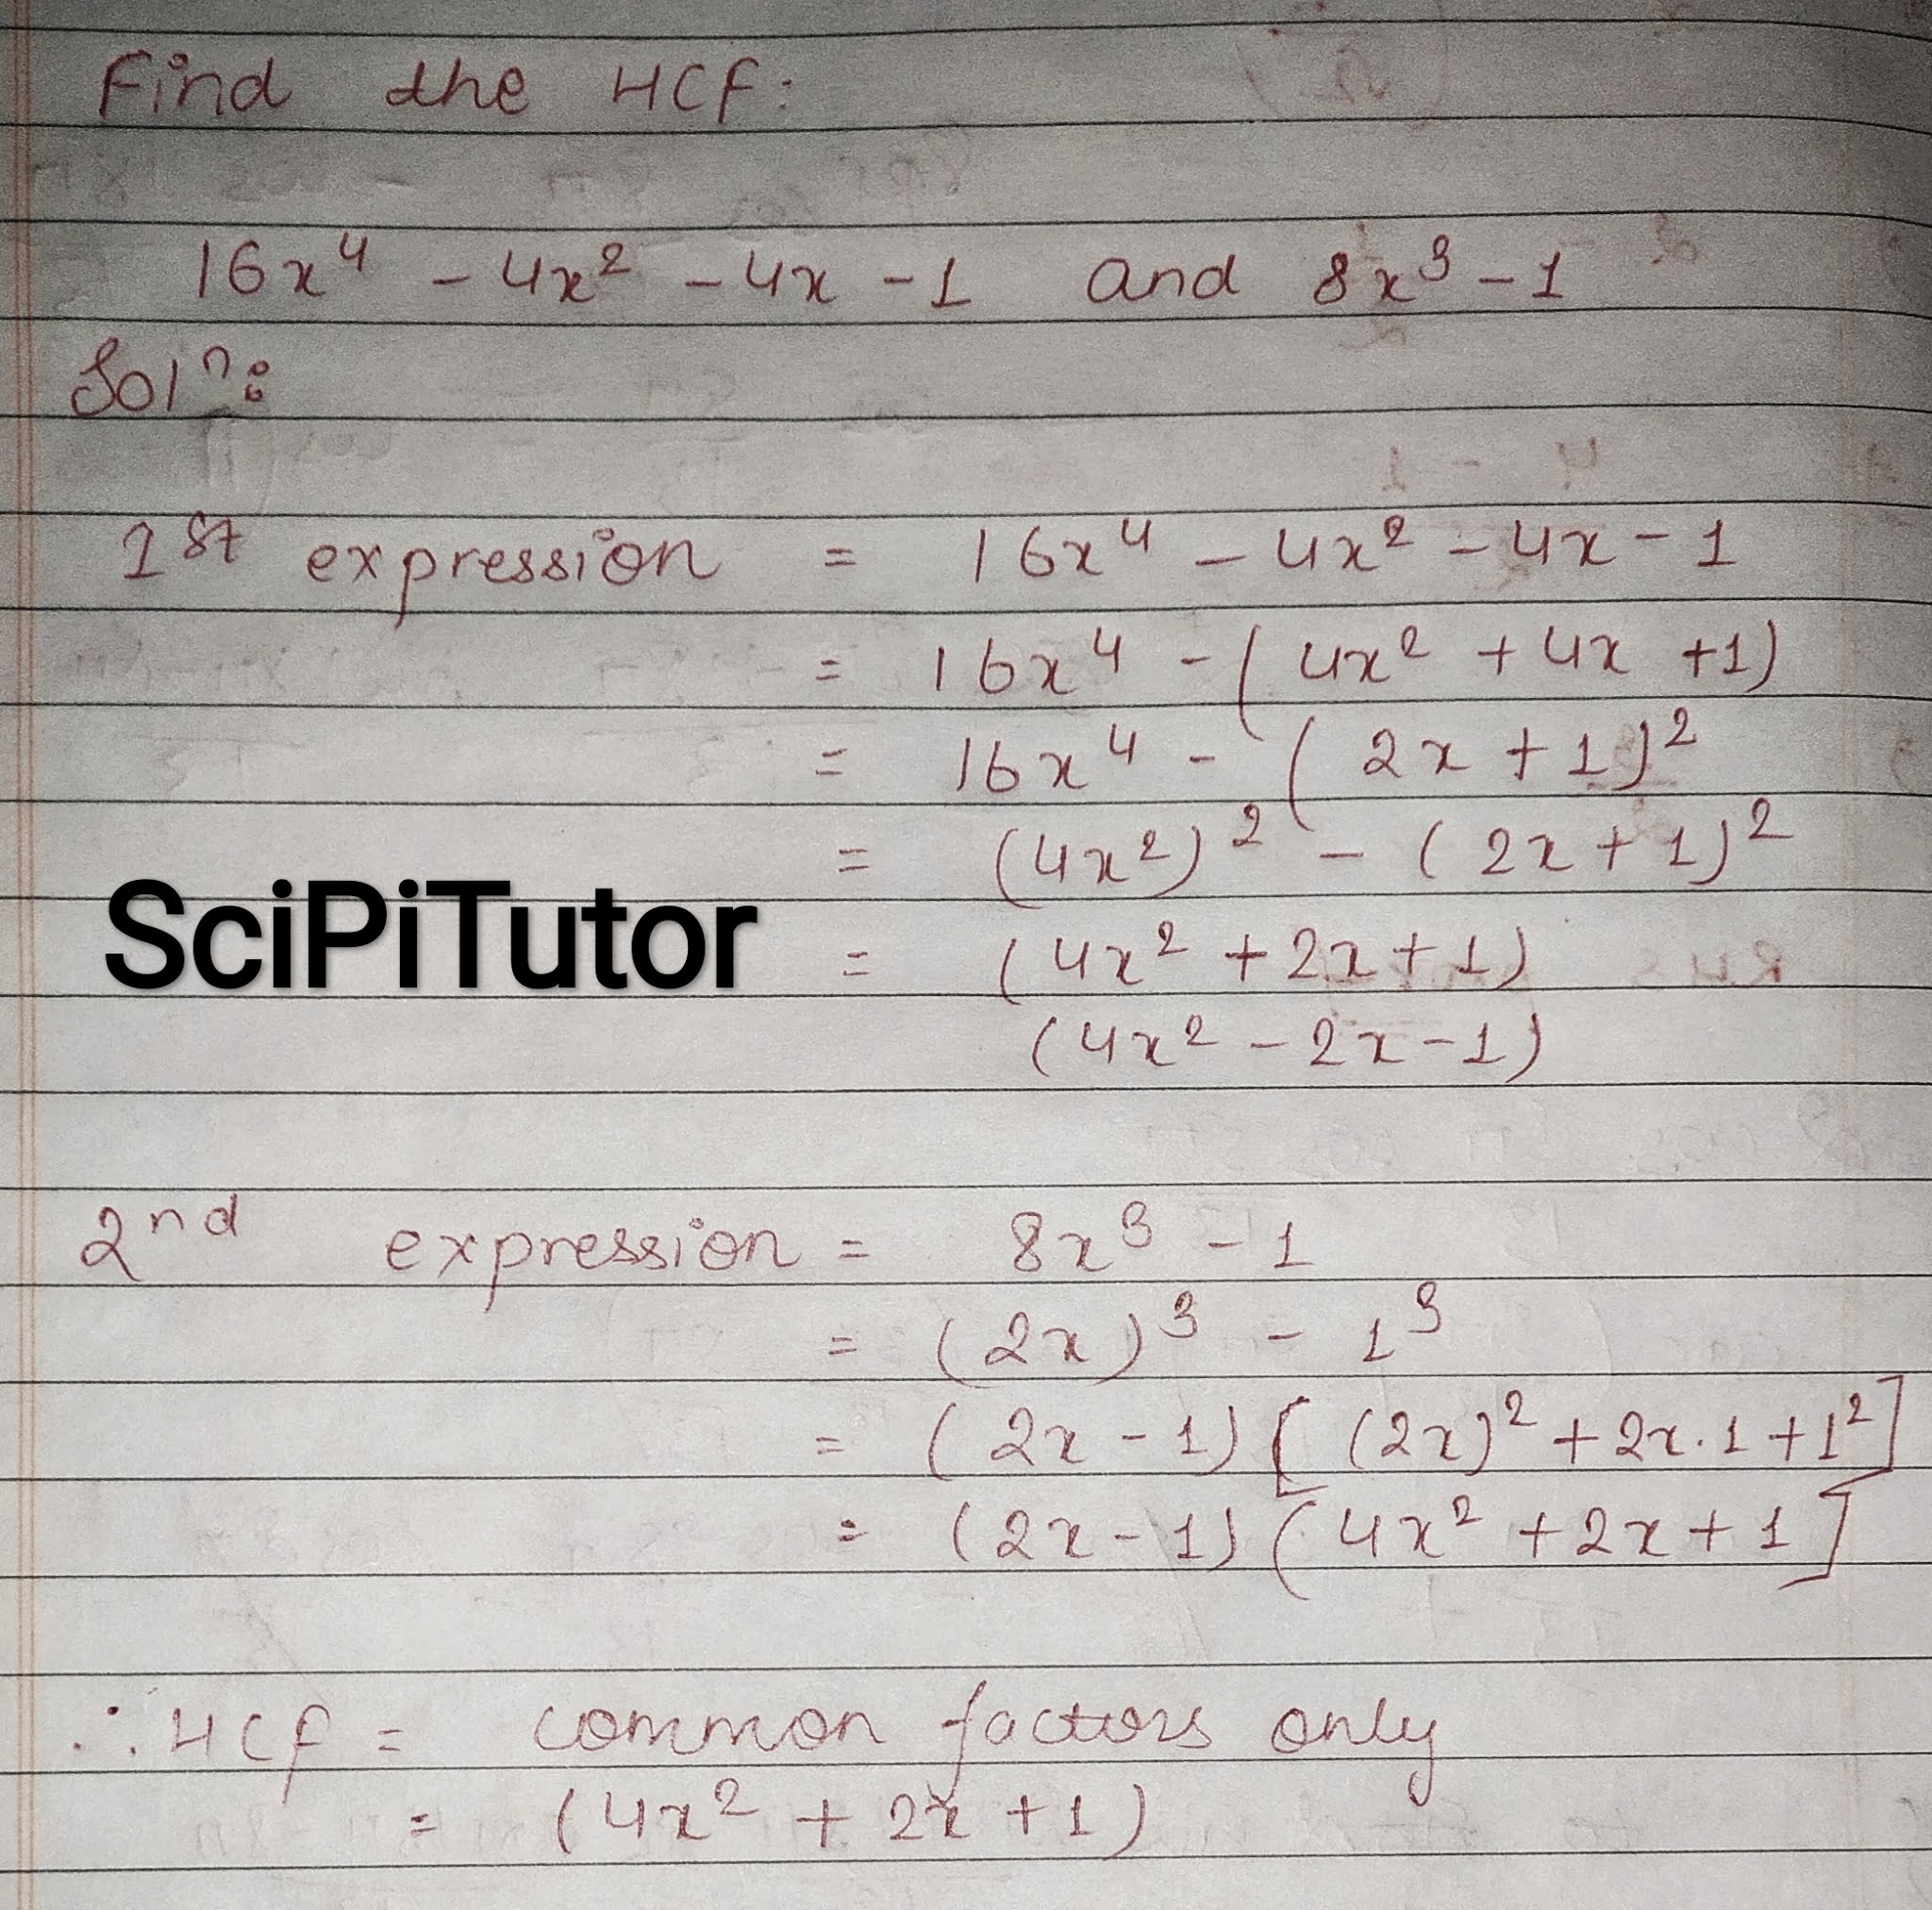 Find the HCF:
16x⁴ - 4x² - 4x - 1 and 8x³ - 1
Solⁿ:
1st expression = 16x⁴ - 4x² - 4x - 1
= 16x⁴ - (4x² + 4x + 1)
= 16x⁴ - (2x + 1)²
= (4x²)² - (2x + 1)²
SciPiTutor
= (4x² + 2x + 1)
(4x² - 2x - 1)
2nd expression = 8x³ - 1
= (2x)³ - 1³
= (2x - 1) [(2x)² + 2x.1 + 1²]
= (2x - 1) (4x² + 2x + 1]
∴ HCF = common factors only
= (4x² + 2x + 1)